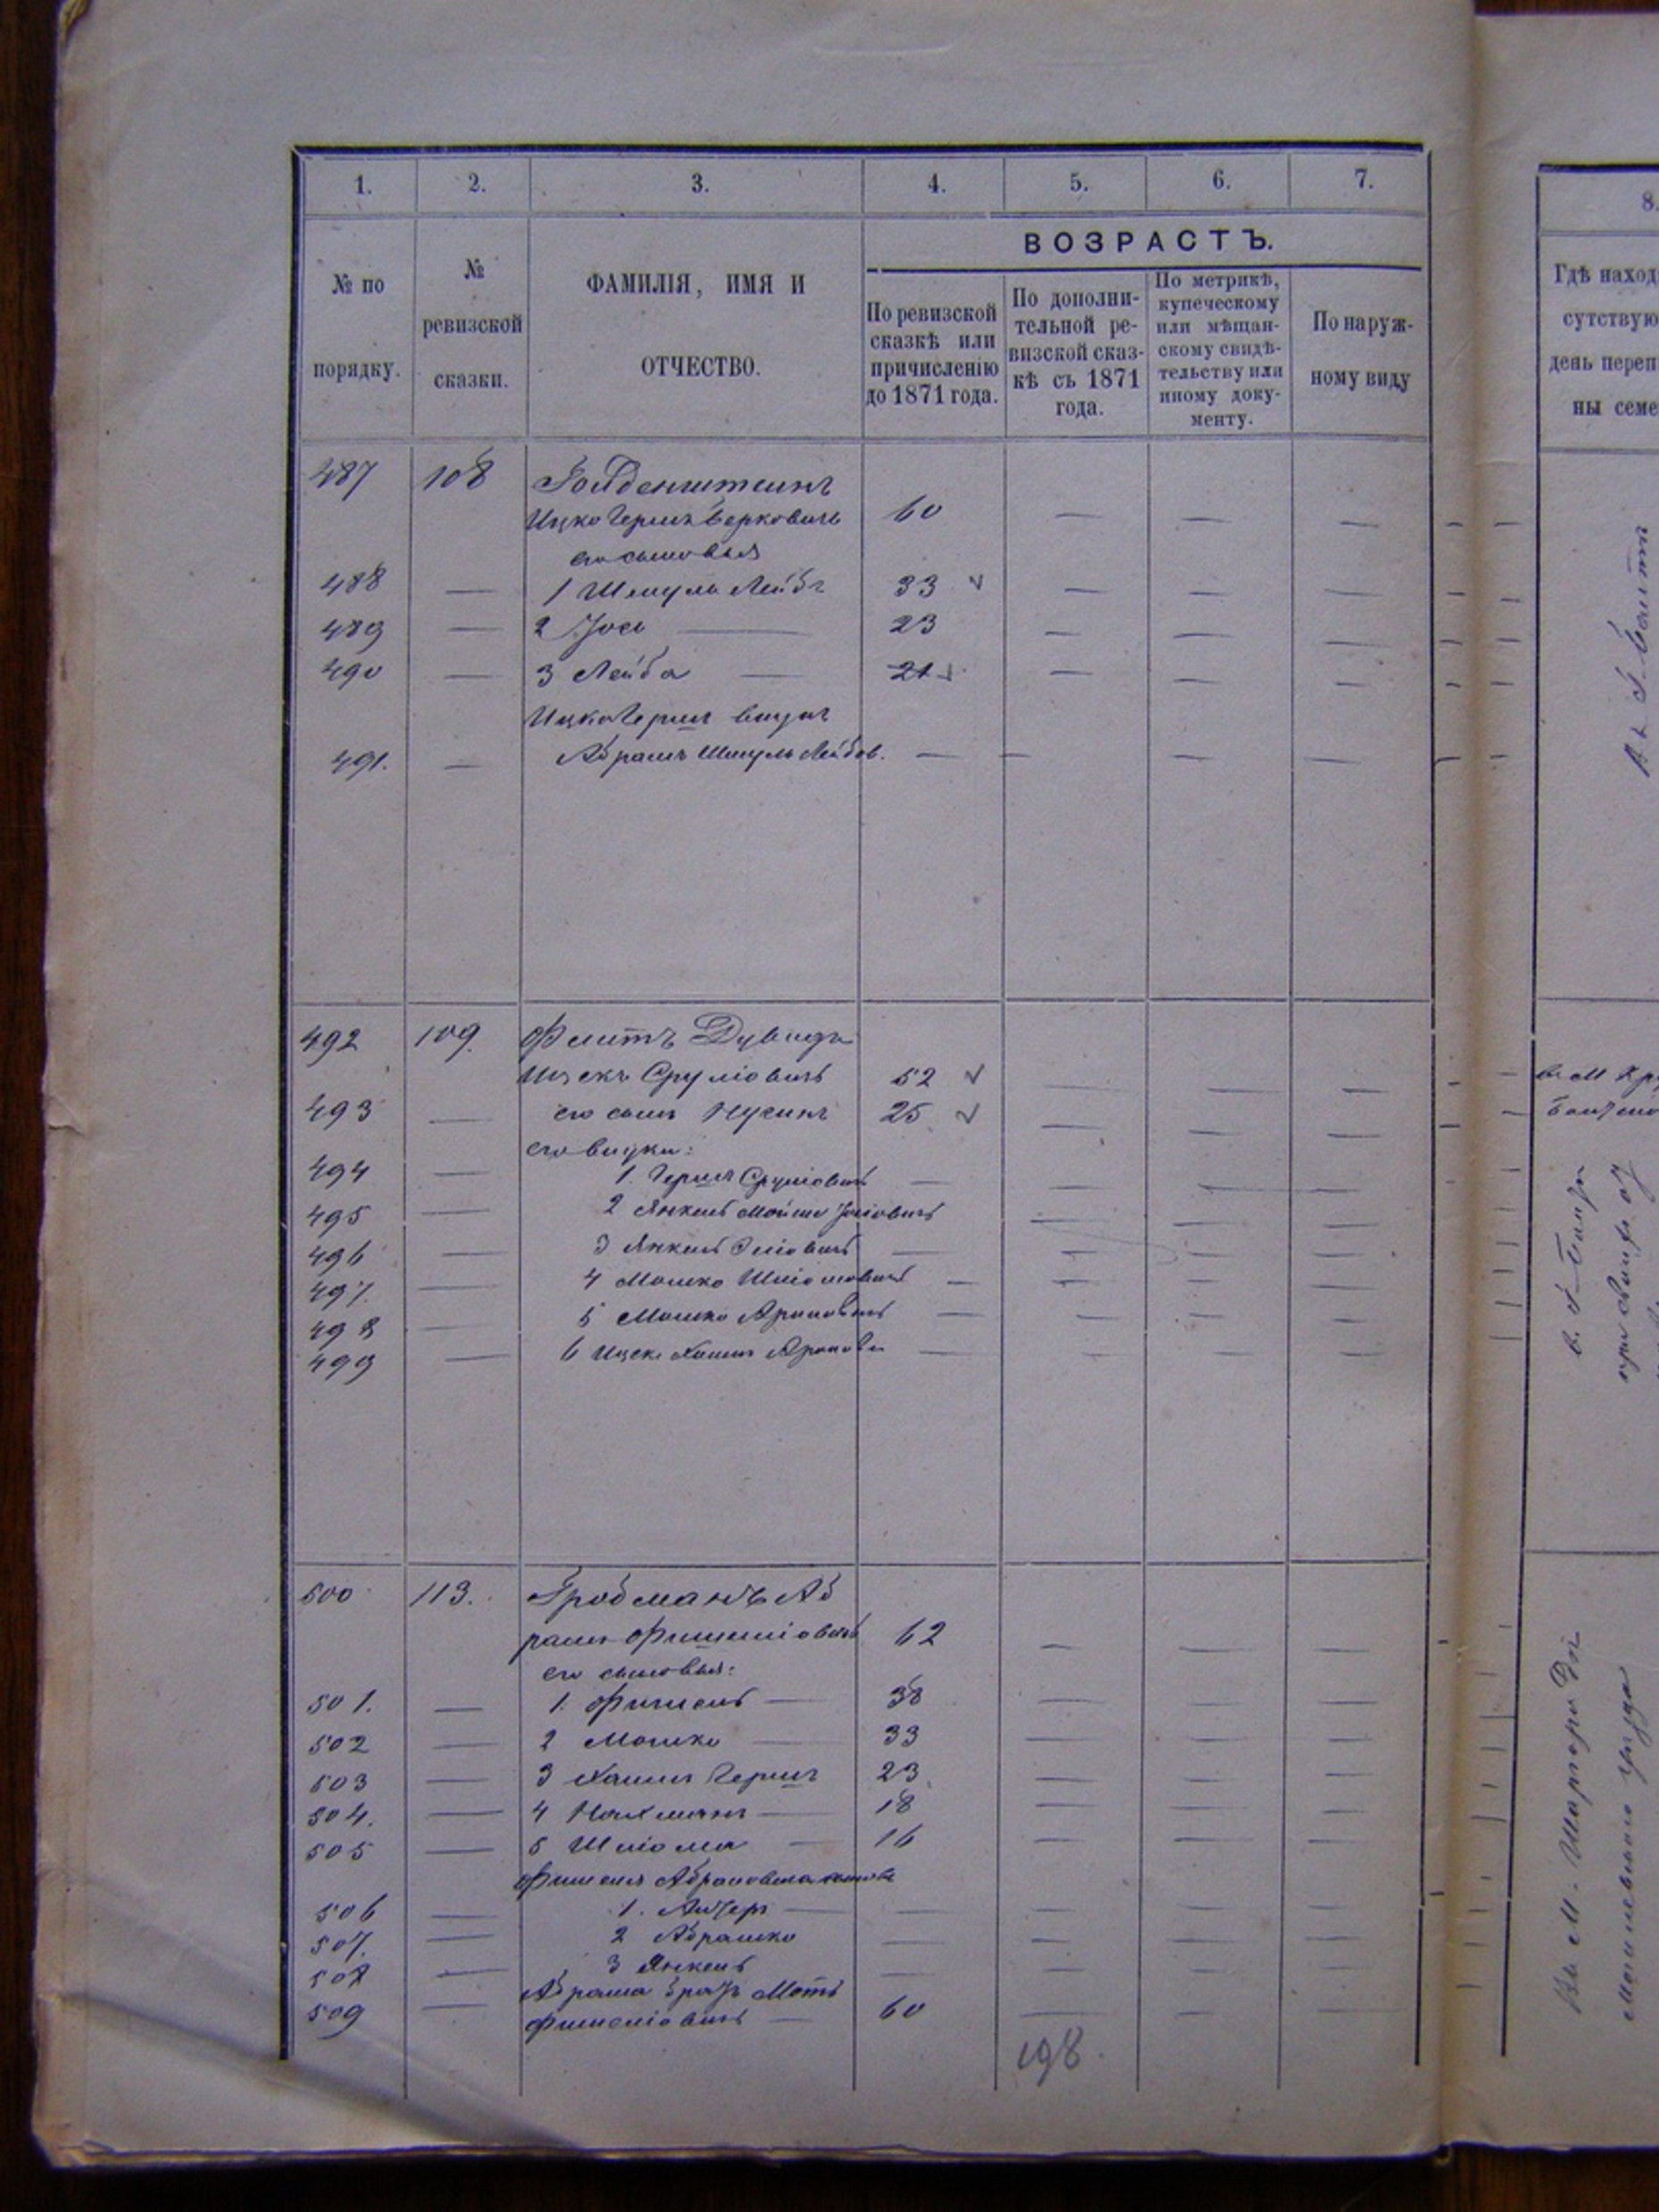 1. 2. 3. 4. 5. 6. 7.
№ по порядку.
№ ревизской сказки.
ФАМИЛІЯ, ИМЯ И ОТЧЕСТВО.
ВОЗРАСТЪ.
По ревизской сказкѣ или причисленію до 1871 года.
По дополни-тельной ре-визской сказ-кѣ съ 1871 года.
По метрикѣ, купеческому или мѣщан-скому свидѣ-тельству или иному доку-менту.
По наруж-ному виду
487 108
Ицко Герш Берковичъ 60 — — —
его сыновья
488 — 1 Шмуль Лейбъ 33 — — —
489 — 2 Іось — 23 — — —
490 — 3 Лейба — 21 — — —
Ицко Герша внукъ
491. — Абрамъ Шмуль Лейбов. — — — —
492 109. Дувидъ
Ицекъ Сруліовичъ 52 — — —
493 — его сынъ Нусинъ 25 — — —
его внуки:
494 — 1. Герш Сруліовичъ — — — —
495 — 2 Янкель Мойше — — —
496 — 3 Янкель — — — —
497. — 4 Мошко Шліомовичъ — — — —
498 — 5 Мошко Ароновичъ — — — —
499 — 6 Ицек Хаимъ Аронови — — — —
500 113. Гробманъ Аб
рамъ Фишеліовичъ 62 — — —
его сыновья:
501. — 1. Фишель — 38 — — —
502 — 2 Мошко — 33 — — —
503 — 3 Хаимъ Гершъ 23 — — —
504. — 4 Нахманъ — 18 — — —
505 — 5 Шліома — 16 — — —
Фишеля Абрамовича сыновья
506 — 1. — — — — —
507. — 2 Абрашко — — — —
508 — 3 Янкель — — — —
Абрама братъ Мотъ
509 — Фишеліовичъ — 60 — — —
198.
8.
Гдѣ наход
сутствую
день переп
ны семе